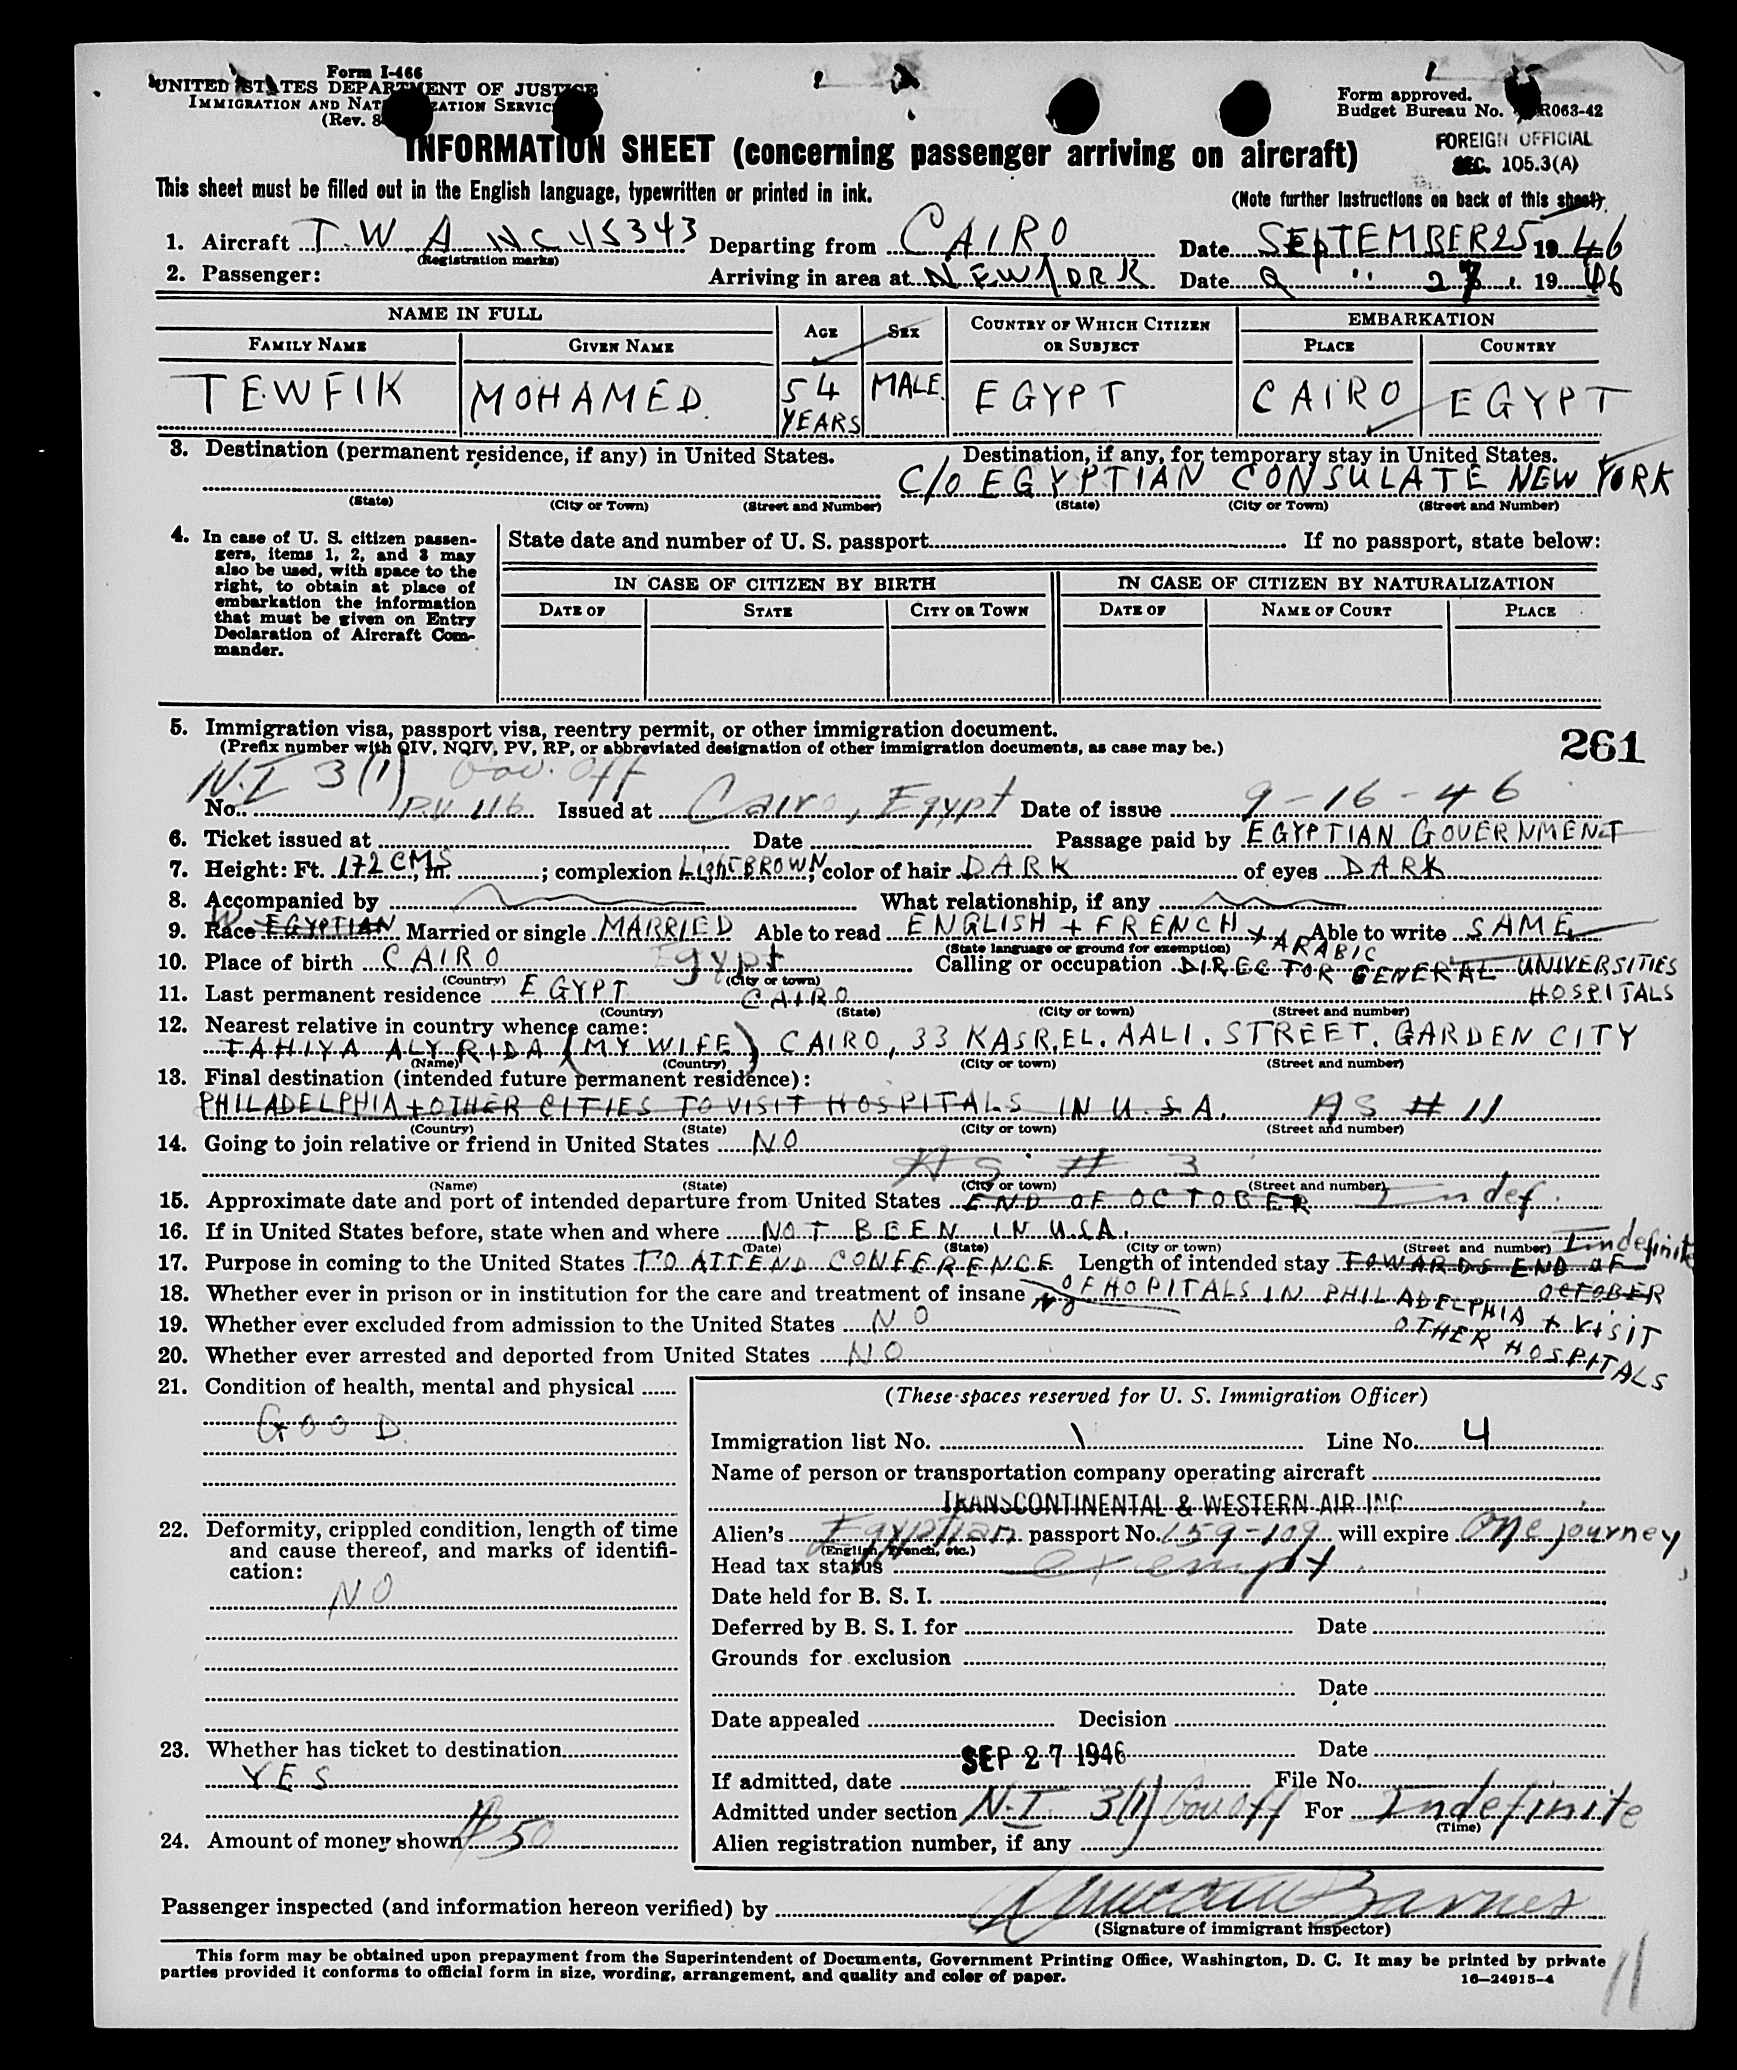 Form I-466
UNITED STATES DEPARTMENT OF JUSTICE
IMMIGRATION AND NATURALIZATION SERVICE
(Rev. 8
Form approved.
Budget Bureau No. R063-42
FOREIGN OFFICIAL
SEC. 105.3(A)
INFORMATION SHEET (concerning passenger arriving on aircraft)
This sheet must be filled out in the English language, typewritten or printed in ink.
(Note further instructions on back of this sheet).
1. Aircraft T.W.A. NC 45343 Departing from CAIRO Date SEPTEMBER 25 1946
(Registration marks)
2. Passenger: Arriving in area at NEW YORK Date 9 " 27 1946
NAME IN FULL AGE SEX COUNTRY OF WHICH CITIZEN OR SUBJECT EMBARKATION
FAMILY NAME GIVEN NAME PLACE COUNTRY
TEWFIK MOHAMED 54 YEARS MALE EGYPT CAIRO EGYPT
3. Destination (permanent residence, if any) in United States. Destination, if any, for temporary stay in United States.
C/O EGYPTIAN CONSULATE NEW YORK
(State) (City or Town) (Street and Number) (State) (City or Town) (Street and Number)
4. In case of U. S. citizen passengers, items 1, 2, and 3 may also be used, with space to the right, to obtain at place of embarkation the information that must be given on Entry Declaration of Aircraft Commander.
State date and number of U. S. passport If no passport, state below:
IN CASE OF CITIZEN BY BIRTH IN CASE OF CITIZEN BY NATURALIZATION
DATE OF STATE CITY OR TOWN DATE OF NAME OF COURT PLACE
5. Immigration visa, passport visa, reentry permit, or other immigration document.
(Prefix number with QIV, NQIV, PV, RP, or abbreviated designation of other immigration documents, as case may be.)
261
N.I 3(1) Gov. Off
No. P.V. 116 Issued at Cairo, Egypt Date of issue 9-16-46
6. Ticket issued at Date Passage paid by EGYPTIAN GOVERNMENT
7. Height: Ft. 172 CMS, in. ; complexion LIGHT BROWN; color of hair DARK of eyes DARK
8. Accompanied by What relationship, if any
W
9. Race EGYPTIAN Married or single MARRIED Able to read ENGLISH + FRENCH + ARABIC Able to write SAME
(State language or ground for exemption)
10. Place of birth CAIRO Egypt Calling or occupation DIRECTOR GENERAL UNIVERSITIES HOSPITALS
(Country) (City or town)
11. Last permanent residence EGYPT CAIRO
(Country) (State) (City or town) (Street and number)
12. Nearest relative in country whence came:
TAHIYA ALY RIDA (MY WIFE) CAIRO, 33 KASR.EL.AALI.STREET. GARDEN CITY
(Name) (Country) (City or town) (Street and number)
13. Final destination (intended future permanent residence):
PHILADELPHIA + OTHER CITIES TO VISIT HOSPITALS IN U.S.A. AS # 11
(Country) (State) (City or town) (Street and number)
14. Going to join relative or friend in United States NO
AS # 3
(Name) (State) (City or town) (Street and number)
15. Approximate date and port of intended departure from United States END OF OCTOBER Indef.
16. If in United States before, state when and where NOT BEEN IN U.S.A.
(Date) (State) (City or town) (Street and number) Indefinite
17. Purpose in coming to the United States TO ATTEND CONFERENCE Length of intended stay TOWARDS END OF OCTOBER
18. Whether ever in prison or in institution for the care and treatment of insane NO OF HOPITALS IN PHILADELPHIA + VISIT OTHER HOSPITALS
19. Whether ever excluded from admission to the United States NO
20. Whether ever arrested and deported from United States NO
21. Condition of health, mental and physical
GOOD.
22. Deformity, crippled condition, length of time and cause thereof, and marks of identification:
NO
23. Whether has ticket to destination
YES
24. Amount of money shown $50
(These spaces reserved for U. S. Immigration Officer)
Immigration list No. 1 Line No. 4
Name of person or transportation company operating aircraft
TRANSCONTINENTAL & WESTERN AIR INC
Alien's Egyptian passport No. 159-109 will expire One journey
(English, French, etc.)
Head tax status exempt
Date held for B. S. I.
Deferred by B. S. I. for Date
Grounds for exclusion
Date
Date appealed Decision
Date
SEP 27 1946
If admitted, date File No.
Admitted under section N.I. 3(1) Gov. Off For Indefinite
(Time)
Alien registration number, if any
Passenger inspected (and information hereon verified) by Barnes
(Signature of immigrant inspector)
This form may be obtained upon prepayment from the Superintendent of Documents, Government Printing Office, Washington, D. C. It may be printed by private
parties provided it conforms to official form in size, wording, arrangement, and quality and color of paper.
16—24915-4
11